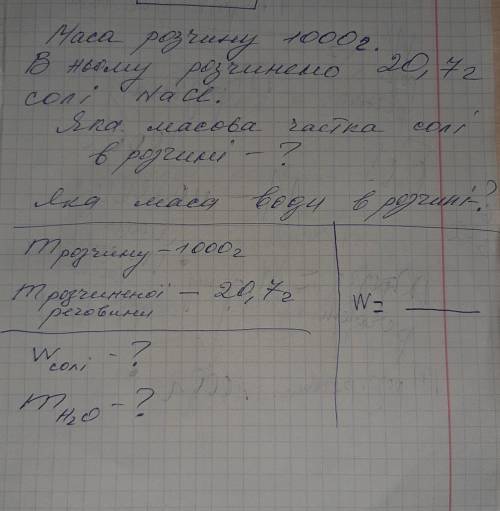 Маса розчину 1000г.
В ньому розчинено 20,7г
солі NaCl.
Яка масова частка солі
в розчині - ?
Яка маса води в розчині-?
m розчину - 1000г
m розчиненої - 20,7г
речовини
W солі - ?
m H₂O - ?
W= ____